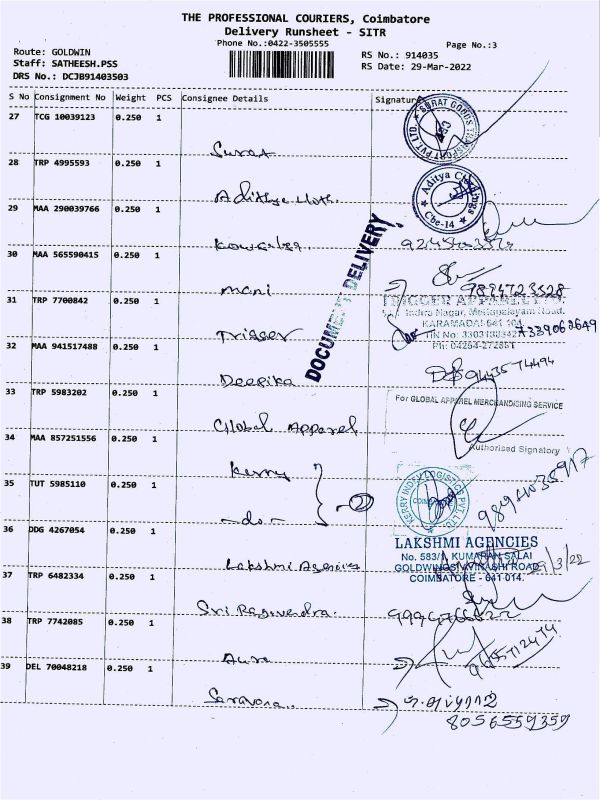 THE PROFESSIONAL COURIERS, Coimbatore
Delivery Runsheet - SITR
Phone No.:0422-3505555
Page No.:3
Route: GOLDWIN
RS No.: 914035
Staff: SATHEESH.PSS
RS Date: 29-Mar-2022
DRS No.: DCJB91403503
S No Consignment No Weight PCS Consignee Details Signature
27 TCG 10039123 0.250 1
Surat
SURAT GOODS TRANSPORT PVT. LTD.
28 TRP 4995593 0.250 1
Adithya
Aditya
Cbe-14
29 MAA 290039766 0.250 1
30 MAA 565590415 0.250 1
mani
DOCUMENT DELIVERY
31 TRP 7700842 0.250 1
Trigger
TRIGGER APPAREL
Indra Nagar, Mettupalayam Road,
KARAMADAI-641 104
32 MAA 941517488 0.250 1
Deepika
33 TRP 5983202 0.250 1
Global Apparel
For GLOBAL APPAREL MERCHANDISING SERVICE
Authorised Signatory
34 MAA 857251556 0.250 1
Kerry
35 TUT 5985110 0.250 1
-do-
KERRY INDEV LOGISTICS PVT LTD
36 DDG 4267054 0.250 1
Lakshmi Agencies
LAKSHMI AGENCIES
No. 583/1, KUMARAN SALAI
GOLDWINGS, AVINASHI ROAD
COIMBATORE - 641 014.
29/3/22
37 TRP 6482334 0.250 1
Sri Ragavendra.
38 TRP 7742085 0.250 1
Aura
39 DEL 70048218 0.250 1
Saravana
8056559359